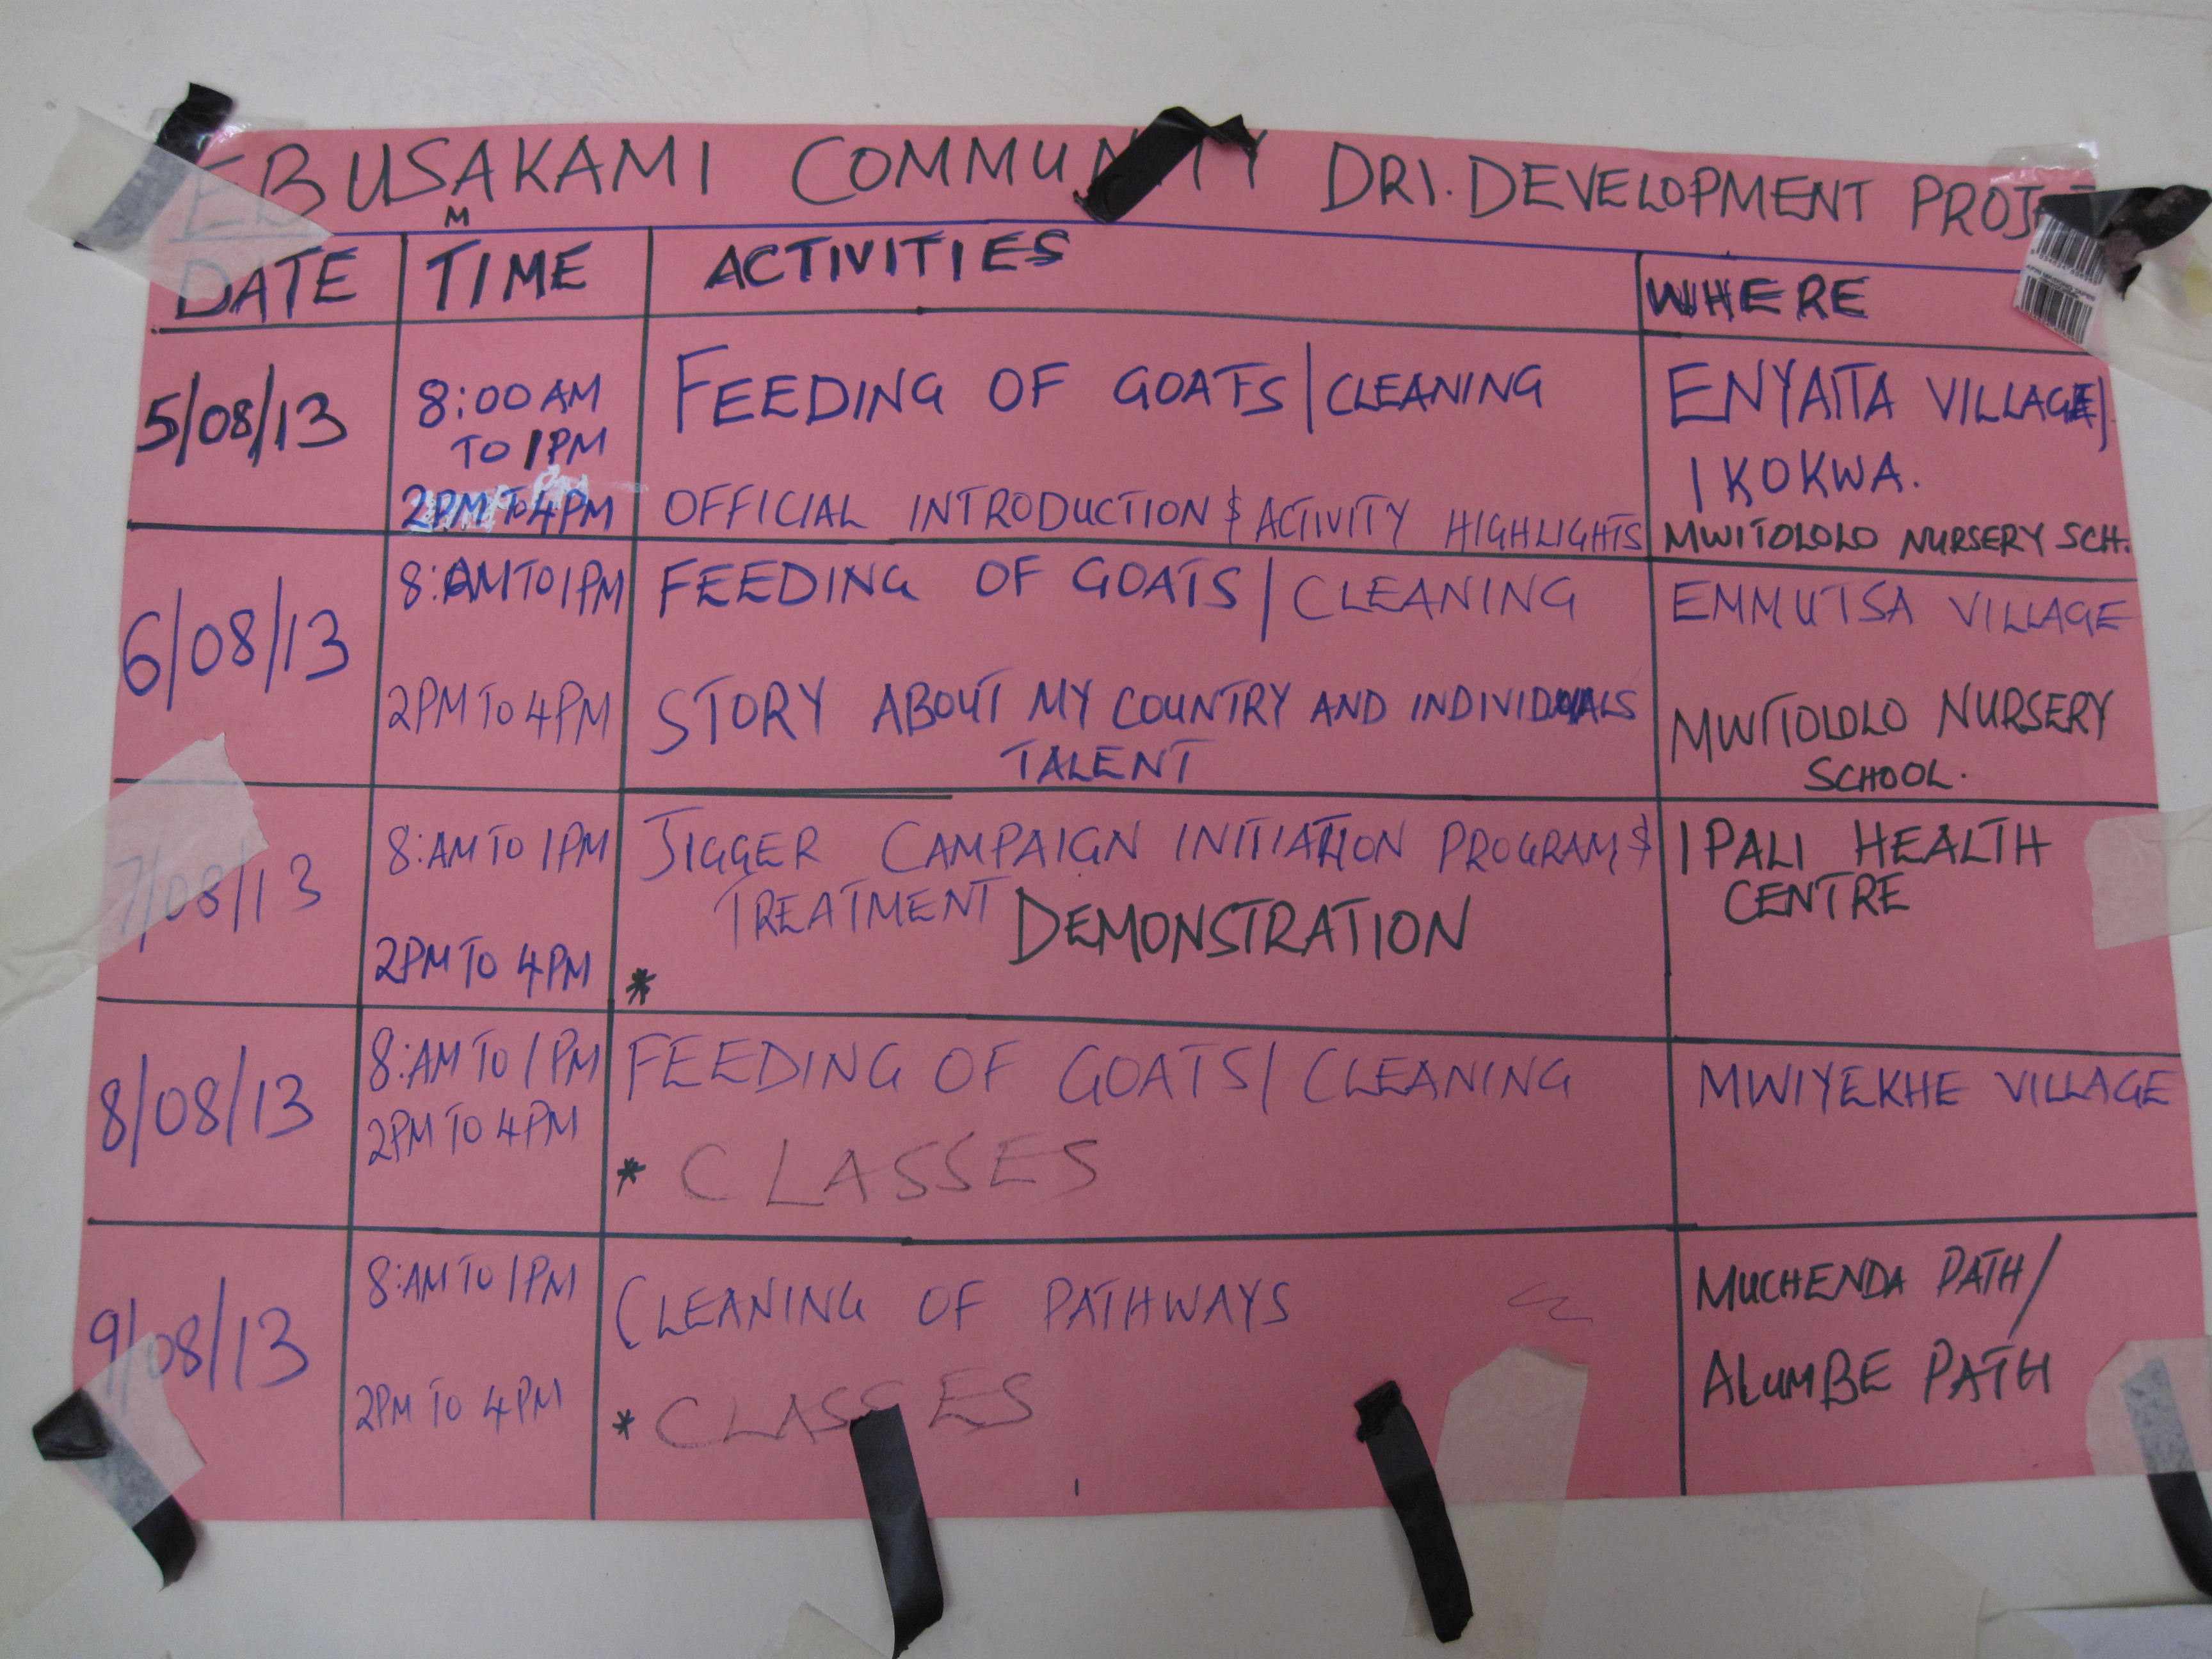 EBUSAKAMI COMMUNITY DRI. DEVELOPMENT PROJE
M
DATE TIME ACTIVITIES WHERE
5/08/13 8:00AM FEEDING OF GOATS/CLEANING ENYAITA VILLAGE/
TO 1PM IKOKWA.
2PM TO 4PM OFFICIAL INTRODUCTION & ACTIVITY HIGHLIGHTS MWITOLOLO NURSERY SCH.
6/08/13 8:AM TO 1PM FEEDING OF GOATS/CLEANING EMMUTSA VILLAGE
2PM TO 4PM STORY ABOUT MY COUNTRY AND INDIVIDUALS MWITOLOLO NURSERY
TALENT SCHOOL.
7/08/13 8:AM TO 1PM JIGGER CAMPAIGN INITIATION PROGRAM & IPALI HEALTH
TREATMENT DEMONSTRATION CENTRE
2PM TO 4PM *
8/08/13 8:AM TO 1PM FEEDING OF GOATS/CLEANING MWIYEKHE VILLAGE
2PM TO 4PM * CLASSES
9/08/13 8:AM TO 1PM CLEANING OF PATHWAYS MUCHENDA PATH/
2PM TO 4PM * CLASSES ALUMBE PATH